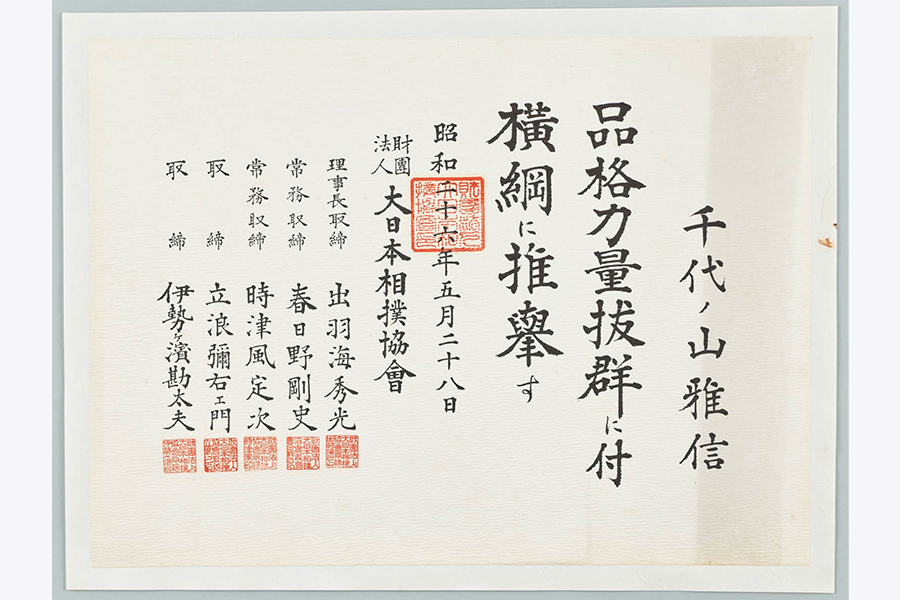 千代ノ山雅信
品格力量抜群に付
横綱に推擧す
昭和二十六年五月二十八日
財團法人 大日本相撲協會
理事長取締 出羽海秀光
常務取締 春日野剛史
常務取締 時津風定次
取締 立浪彌右エ門
取締 伊勢ヶ濱勘太夫